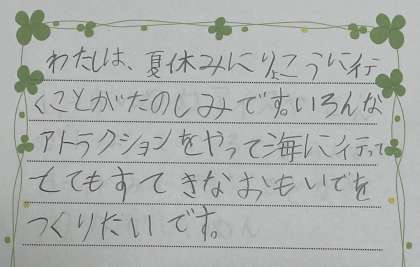 わたしは、夏休みにりょこうに行
くことがたのしみです。いろんな
アトラクションをやって海に行って
とてもすてきなおもいでを
つくりたいです。